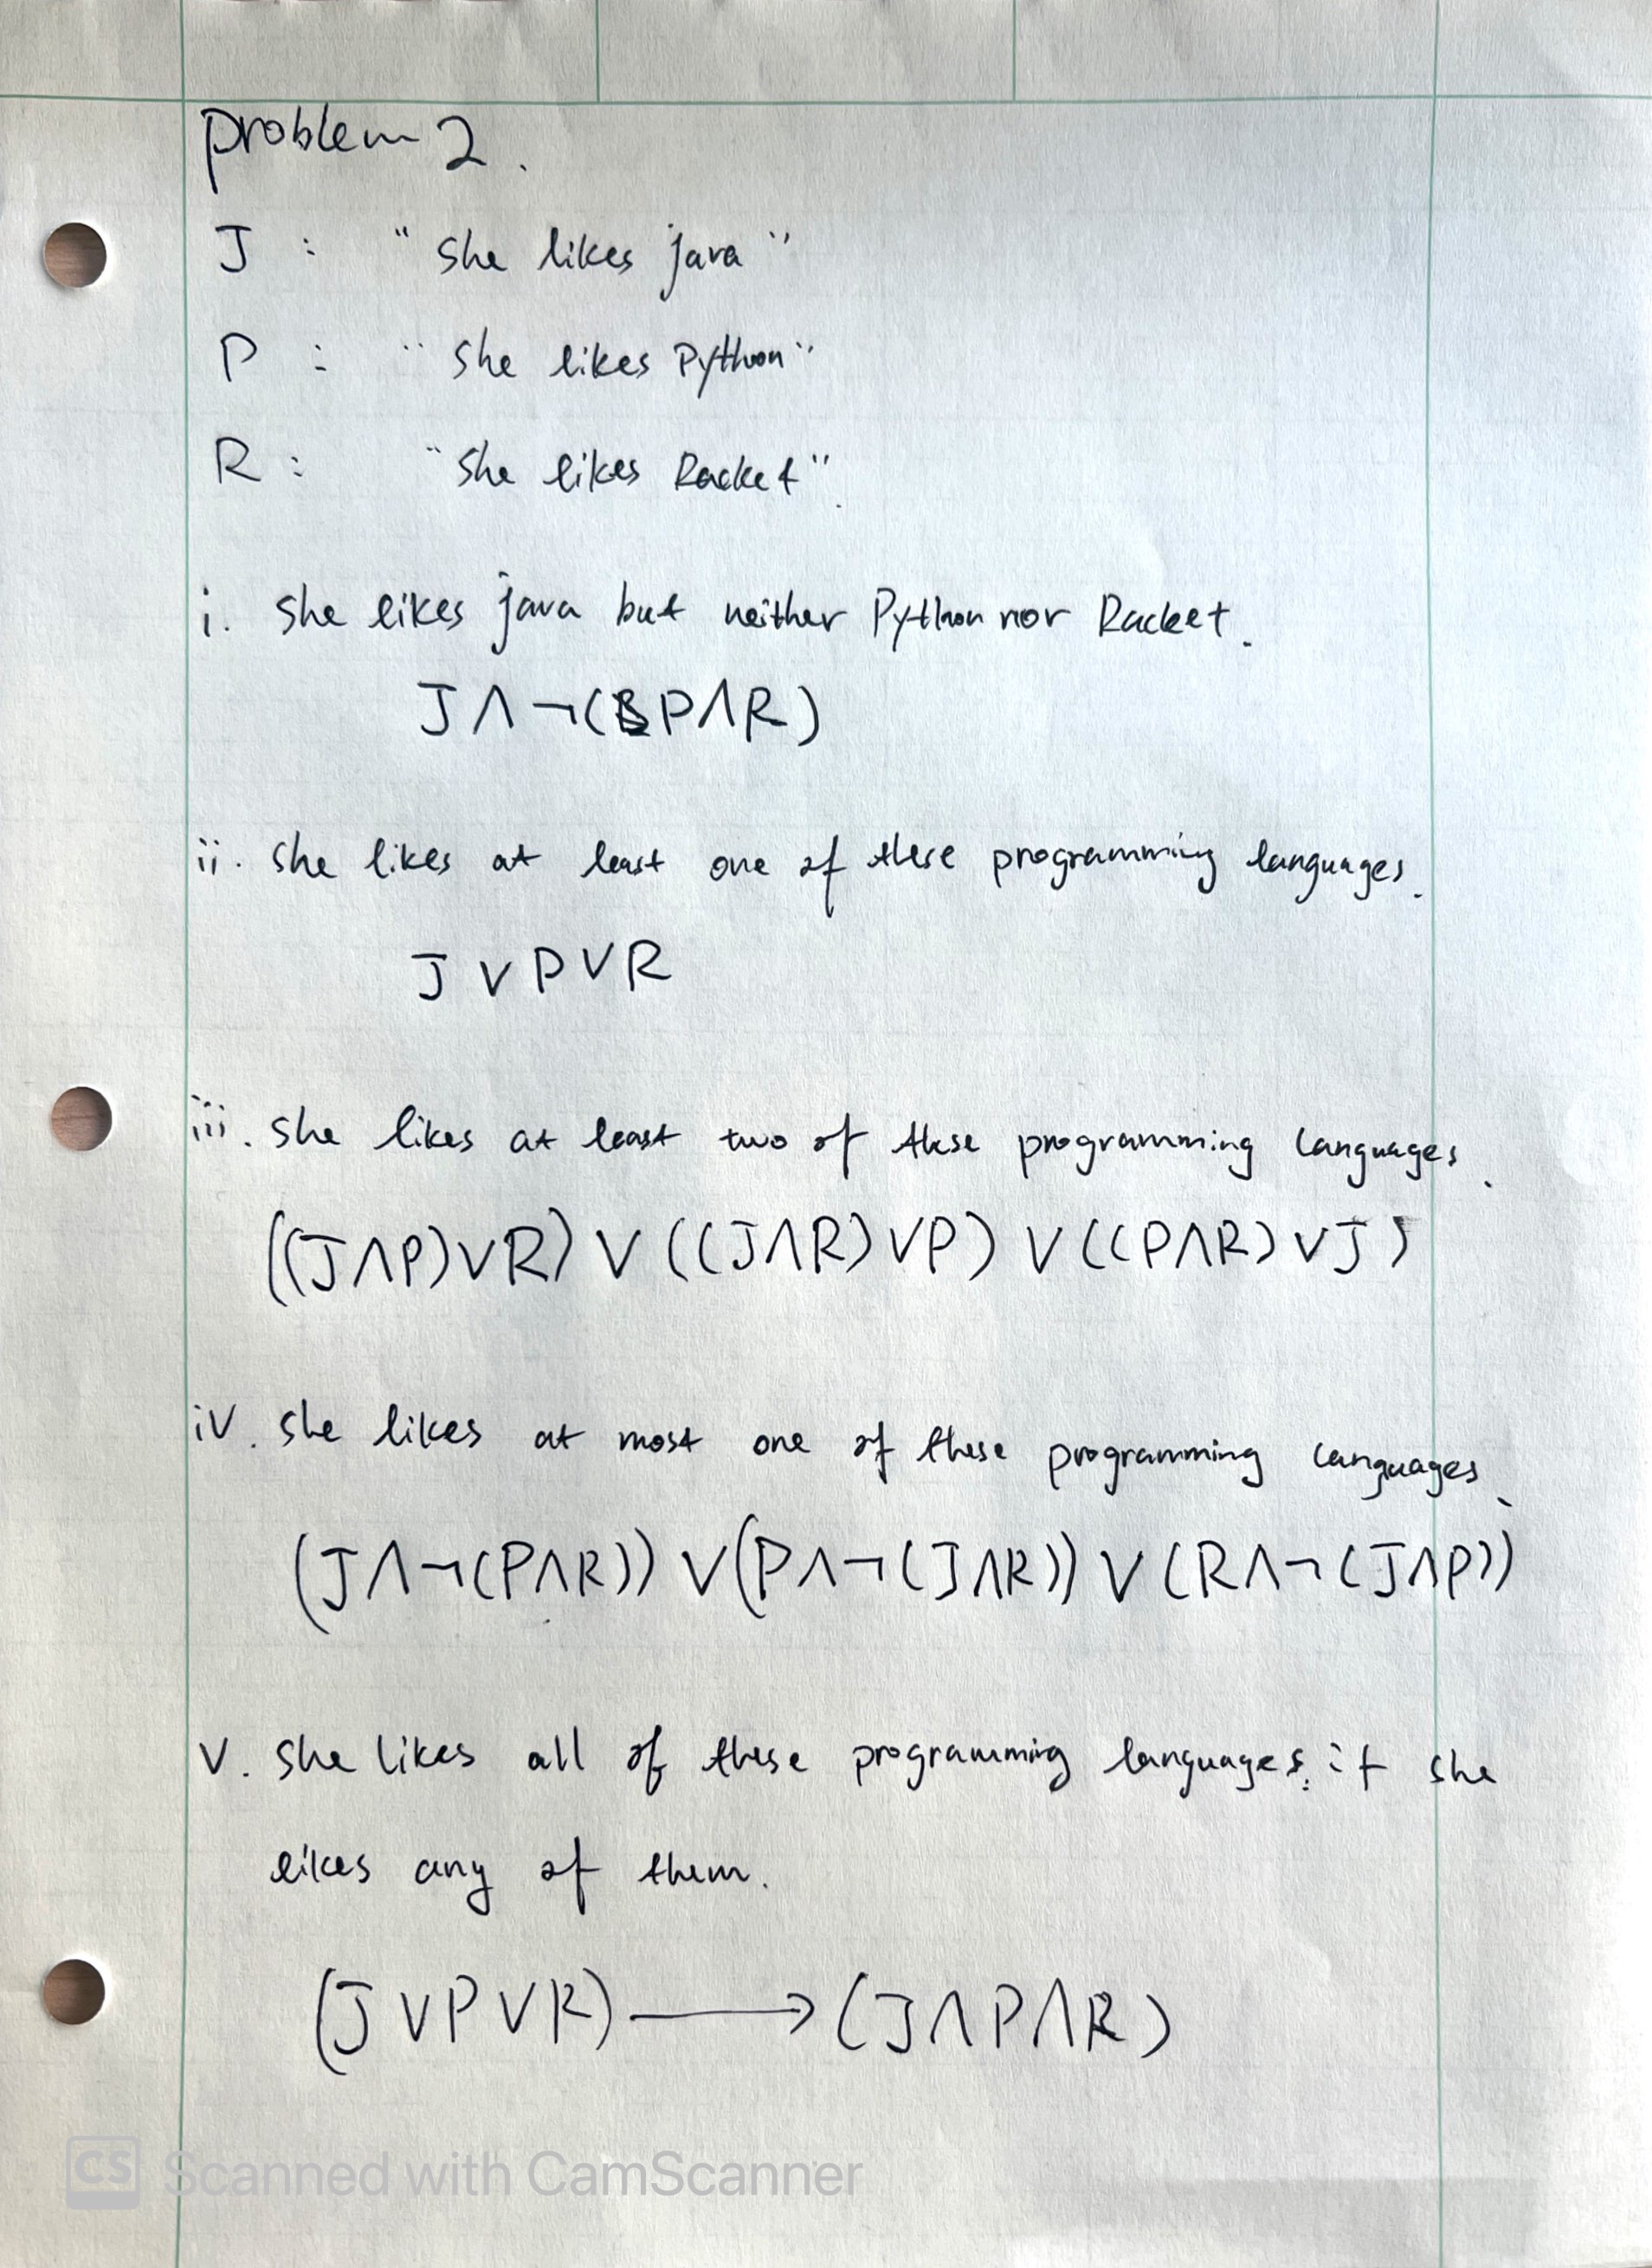 problem 2.
J : "She likes java"
P : "She likes Python"
R : "She likes Racket".
i. She likes java but neither Python nor Racket.
J ∧ ¬(P ∧ R)
ii. She likes at least one of these programming languages.
J ∨ P ∨ R
iii. She likes at least two of these programming languages.
((J ∧ P) ∨ R) ∨ ((J ∧ R) ∨ P) ∨ ((P ∧ R) ∨ J)
iv. She likes at most one of these programming languages.
(J ∧ ¬(P ∧ R)) ∨ (P ∧ ¬(J ∧ R)) ∨ (R ∧ ¬(J ∧ P))
v. She likes all of these programming languages, if she
likes any of them.
(J ∨ P ∨ R) ⟶ (J ∧ P ∧ R)
CS Scanned with CamScanner